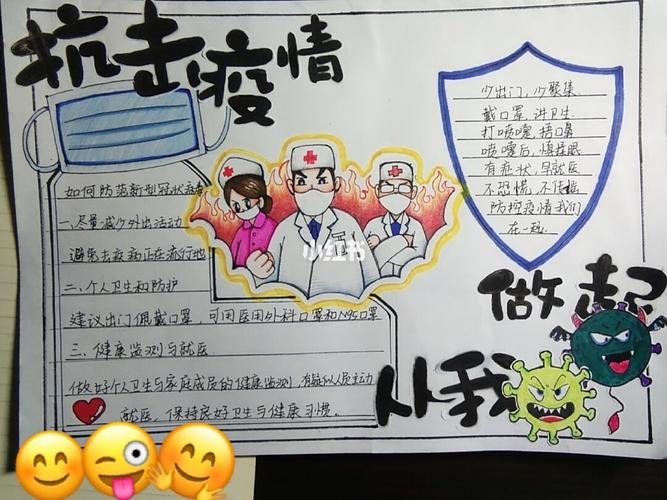 抗击疫情
少出门，少聚集
戴口罩，讲卫生
打喷嚏，捂口鼻
喷嚏后，慎揉眼
有症状，早就医
不恐慌，不传谣
防控疫情我们
在一起
如何防范新型冠状病毒
一、尽量减少外出活动
避免去疾病正在流行地
二、个人卫生和防护
建议出门佩戴口罩，可用医用外科口罩和N95口罩
三、健康监测与就医
做好个人卫生与家庭成员的健康监测，有疑似人员主动
就医，保持良好卫生与健康习惯。
小红书
做起
从我